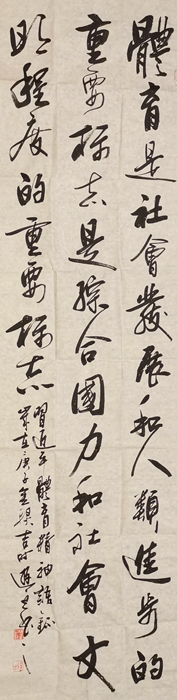 體育是社會發展和人類進步的
重要标志是综合國力和社會文
明程度的重要标志
習近平體育精神語錄
歲在庚子